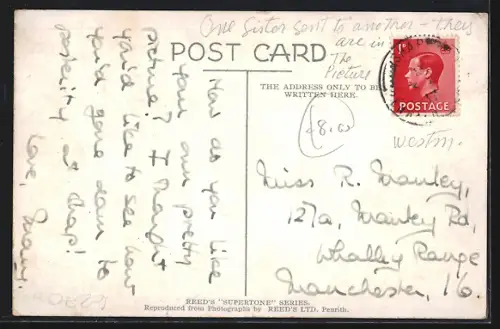 One Sister sent to another - they
are in
The
Picture
POST CARD
THE ADDRESS ONLY TO BE
WRITTEN HERE.
1D
POSTAGE
8.00
Westm.
How do you like
your own pretty
picture? I thought
you'd like to see how
you'd gone down to
posterity at Shap!
Love, Mary.
Miss R. Manley,
127a, Manley Rd,
Whalley Range
Manchester, 16.
REED'S "SUPERTONE" SERIES.
Reproduced from Photographs by REED'S LTD. Penrith.